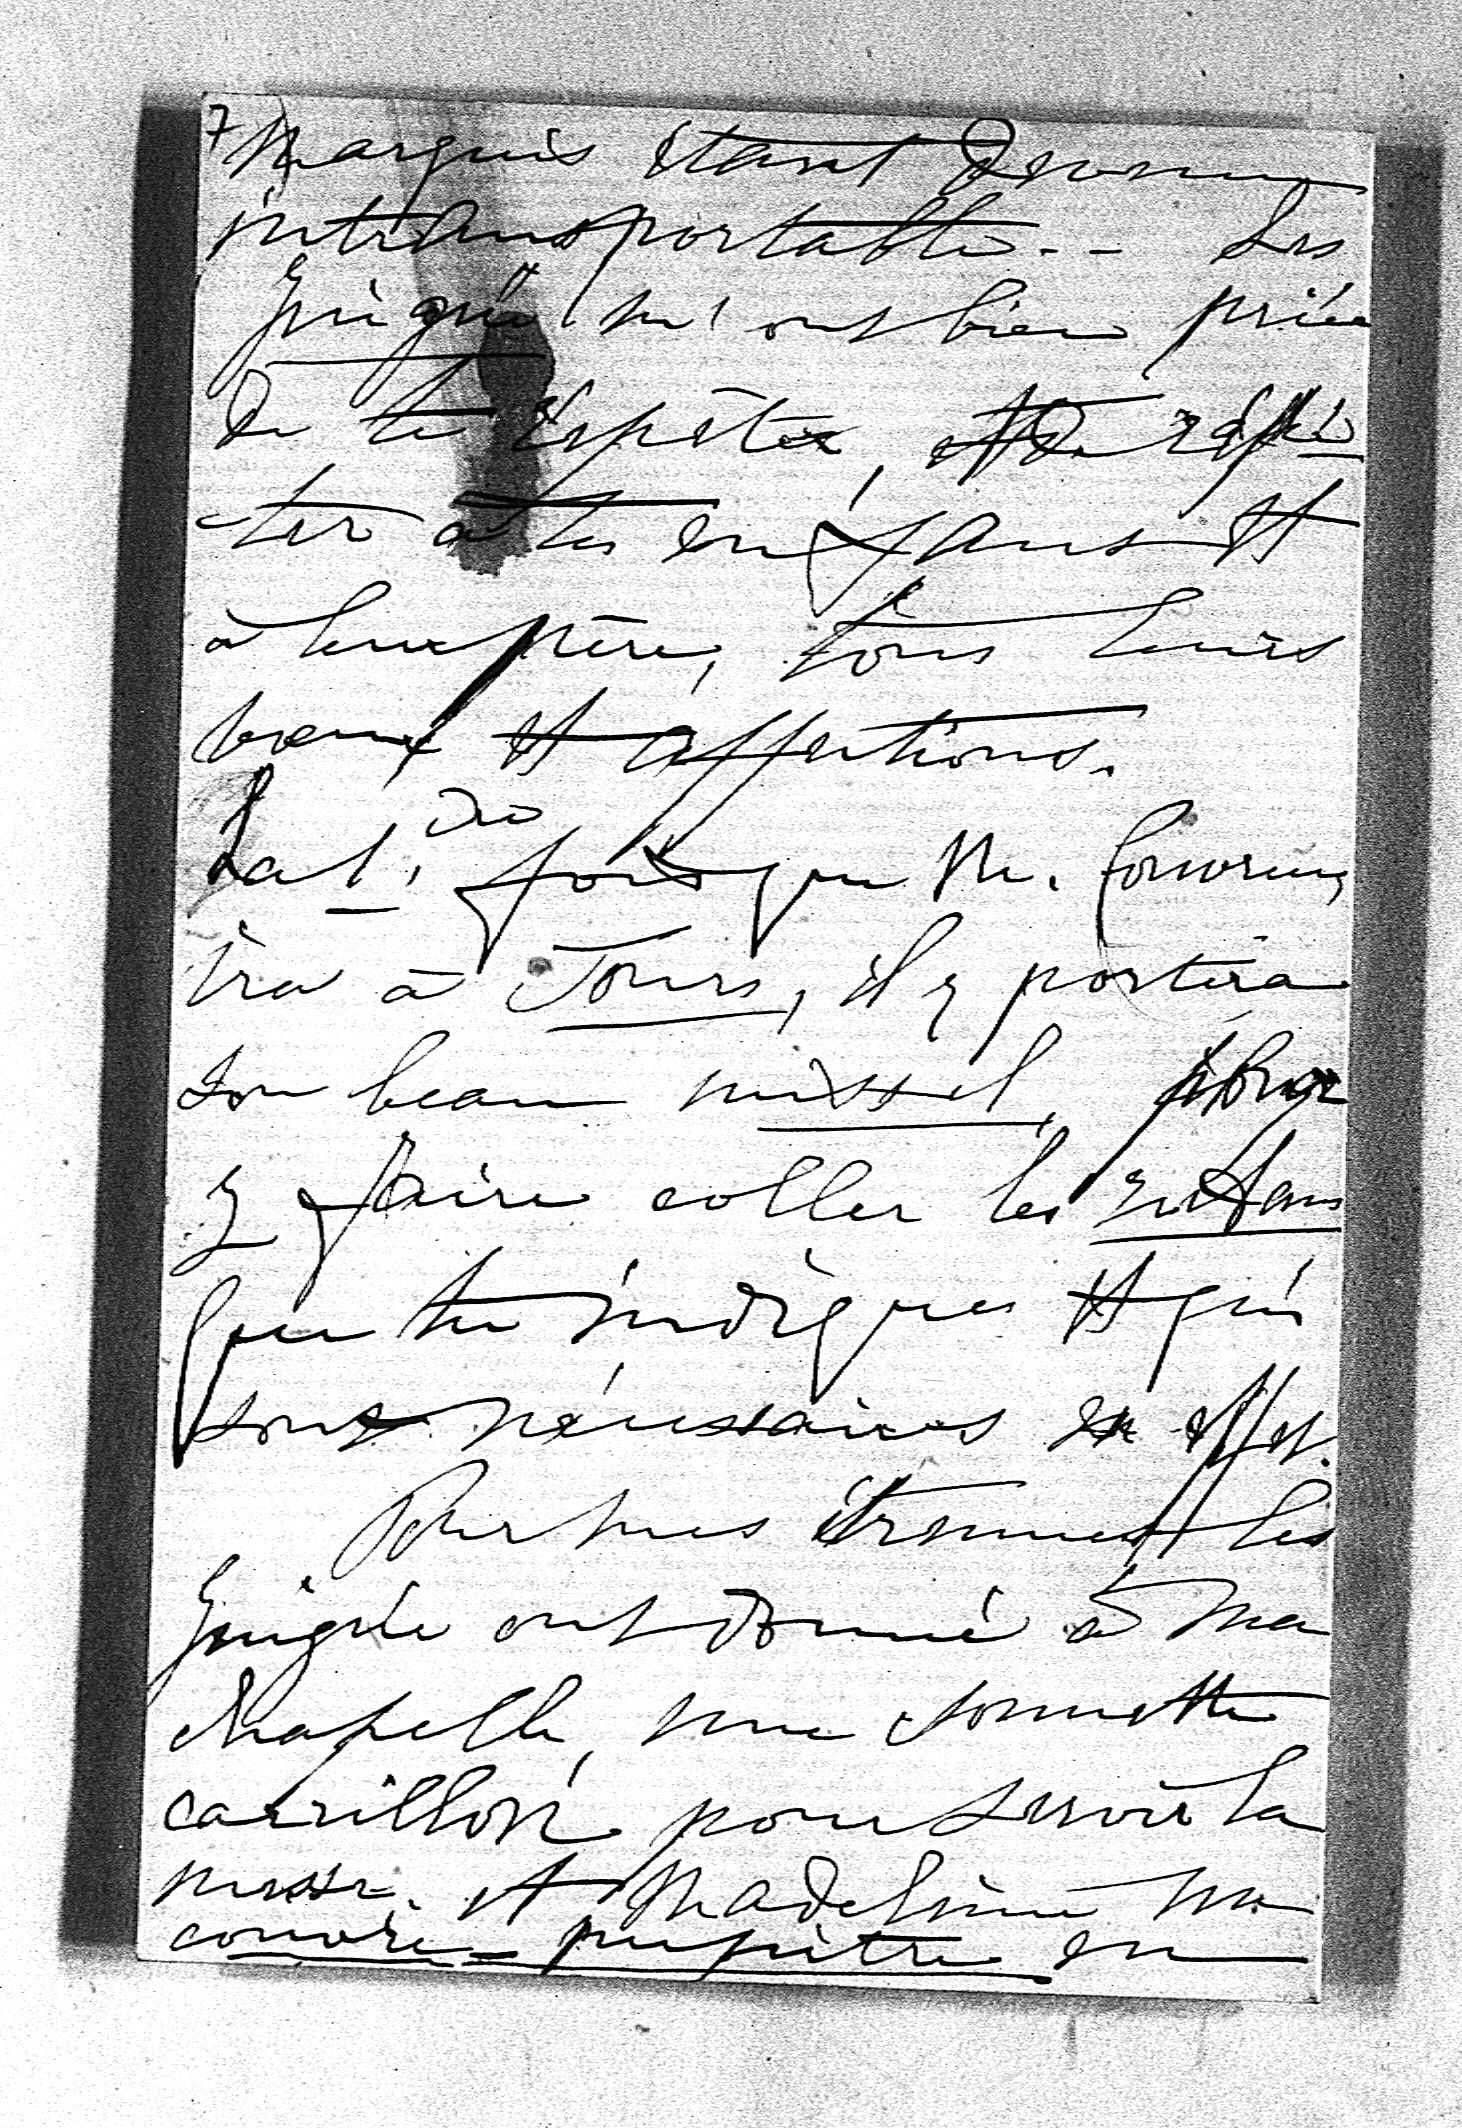 7 Marquis étant devenu
intransportable -- Les
m'ont bien priée
de te répéter, et de répé
-ter à tes enfans et
à leur père, tous leurs
vœux et affections.
La 1.ère fois que M.
ira à Tours, il y portera
son beau missel, pour
y faire coller les
que tu indiques et qui
sont nécessaires en effet.
Pour mes étrennes les
ont donné à ma
chapelle, une sonnette
carrillon pour servir la
messe. et Madeleine un
couvre-pupitre en